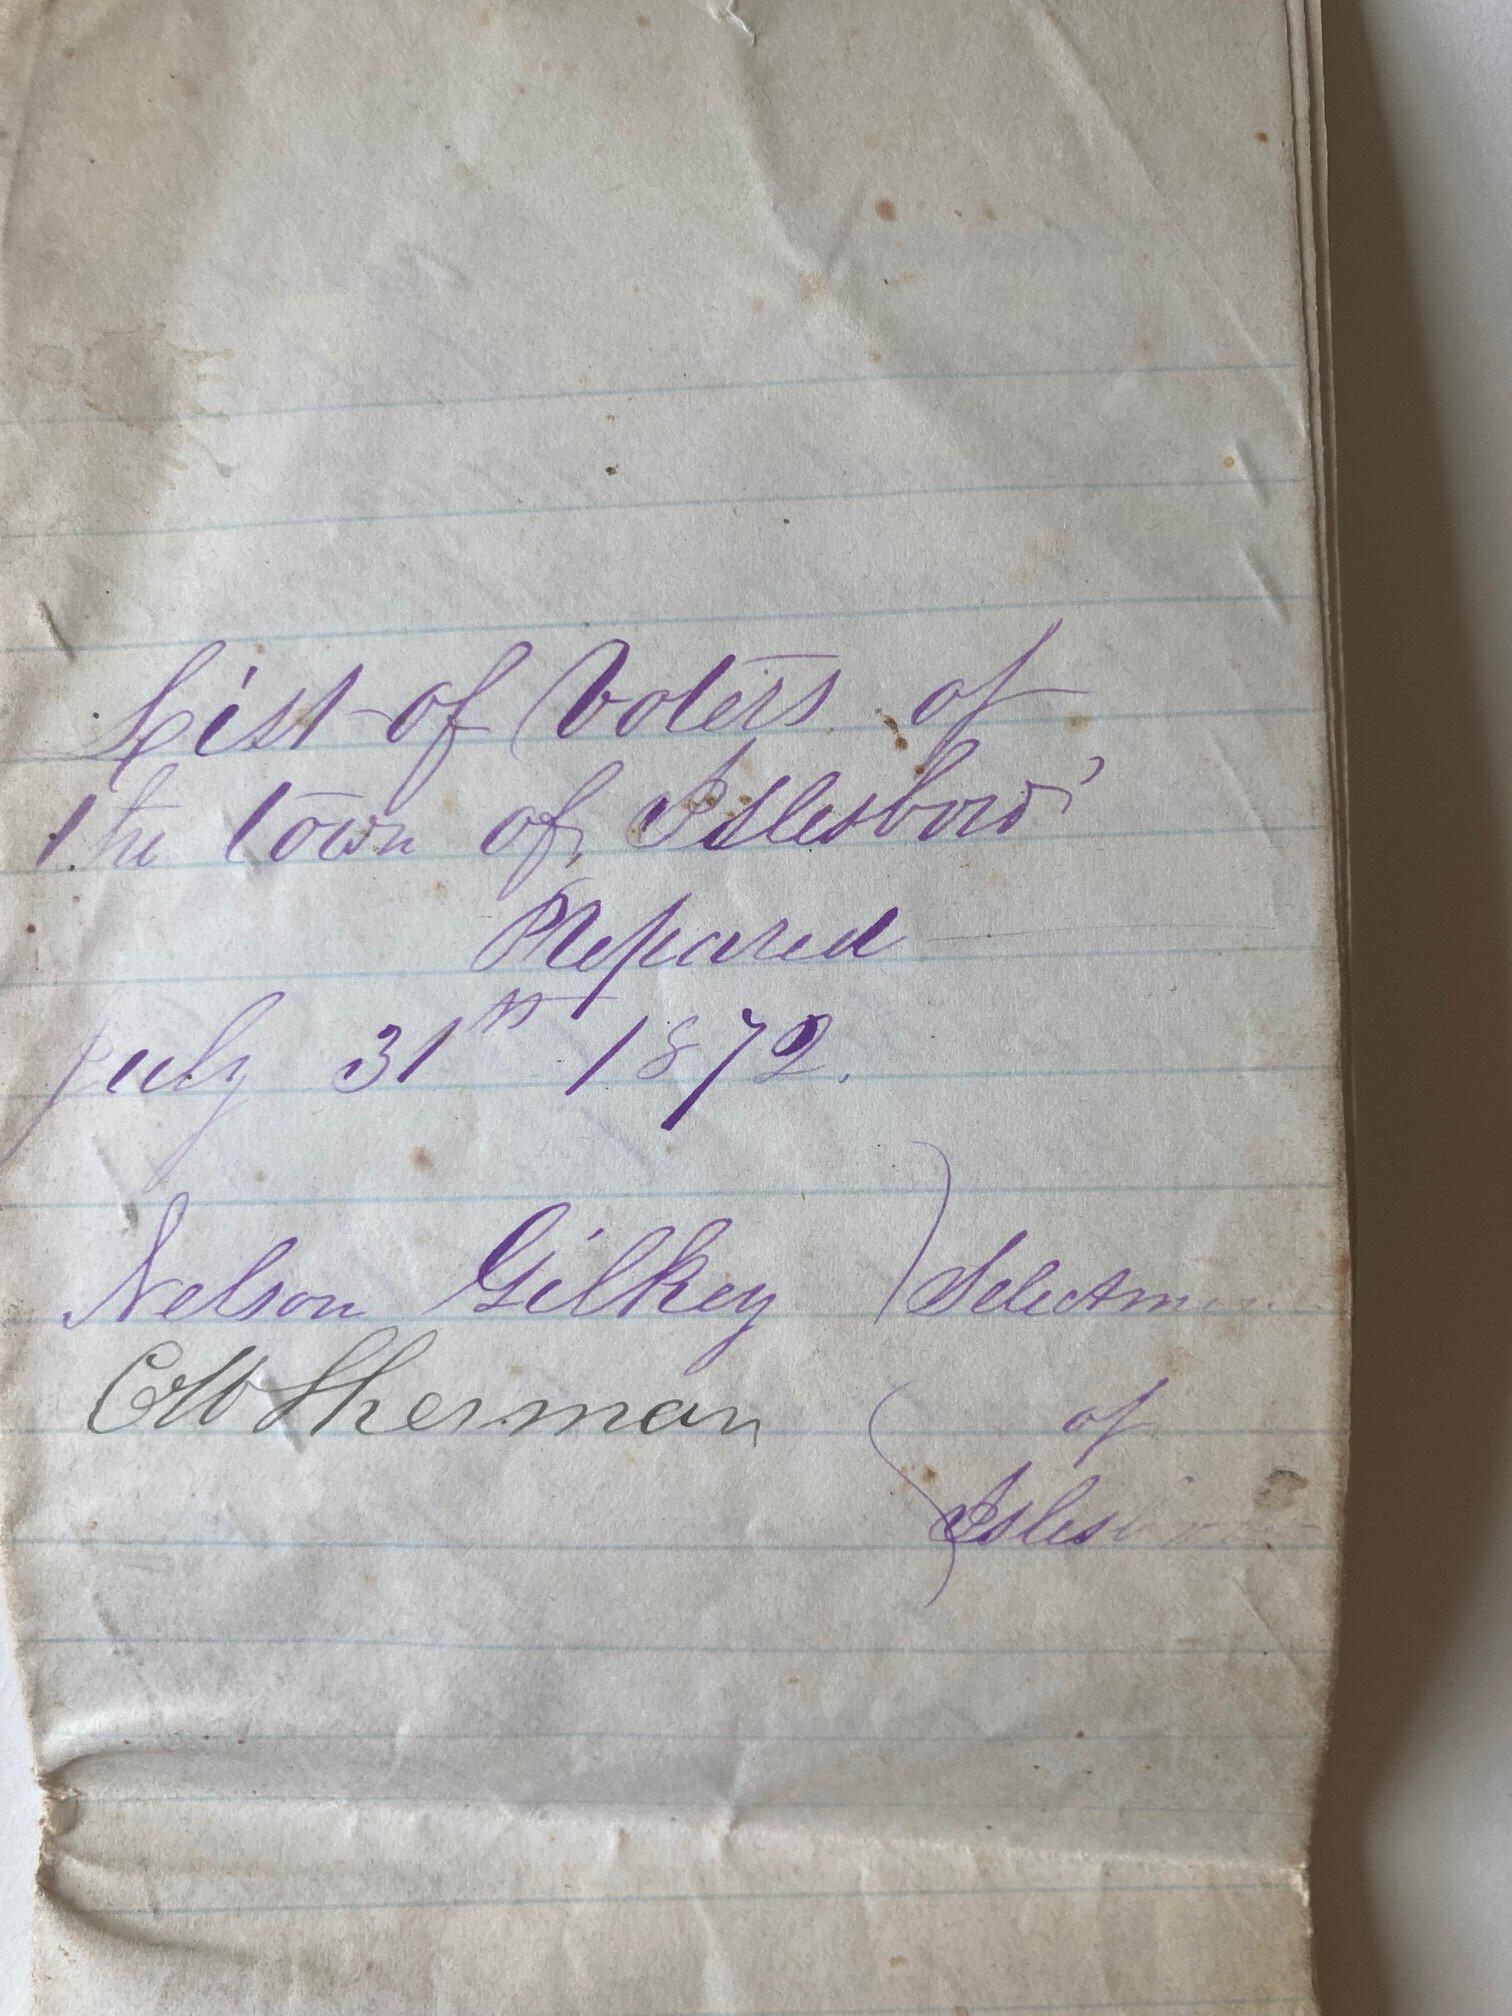 List of Voters of
the town of Islesboro'
Prepared
July 31st 1872.
Nelson Gilkey } Selectmen
C W Sherman } of
Islesboro